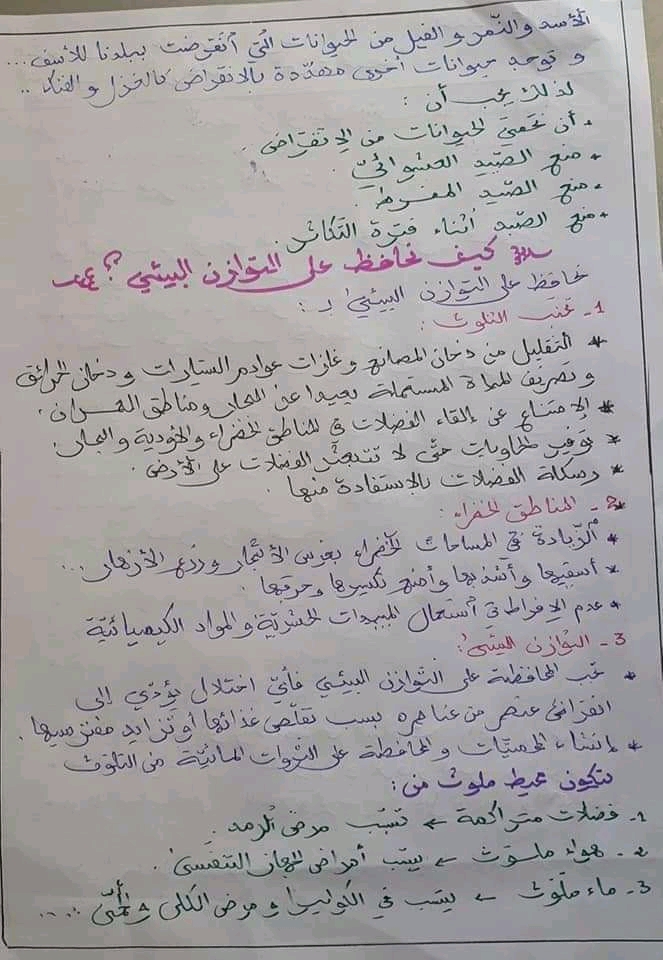 الأسد والنّمر و الفيل من الحيوانات الّتي أنقرضت ببلدنا للأسف...
و توجد حيوانات أخرى مهدّدة بالانقراض كالغزل و الفنك..
لذلك يجب أن :
• أن نحمي الحيوانات من الانقراض
* منع الصّيد العشوائيّ.
* منع الصّيد المفرط.
• منع الصّيد أثناء فترة التكاثر.
كيف نحافظ على التوازن البيئي ؟
نحافظ على التوازن البيئي بـ :
1 - تجنّب التلوث :
* التقليل من دخان المصانع وغازات عوادم السيّارات ودخان الحرائق
و تصريف المياه المستعملة بعيدا عن البحار ومناطق العمران.
* الامتناع عن إلقاء الفضلات في المناطق الخضراء والأودية والبحار.
* توفير الحاويات حتّى لا تتبعثر الفضلات على الأرض.
* رسكلة الفضلات بالاستفادة منها.
2 - المناطق الخضراء :
* الزّيادة في المساحات الخضراء بغرس الأشجار وزرع الأزهار...
* أسقيها وأشذبها وأمنع تكسيرها وحرقها.
* عدم الإفراط في أستعمال المبيدات الحشريّة والمواد الكيميائيّة
3 - التوازن البيئي :
* يجب المحافظة على التّوازن البيئي فأيّ اختلال يؤدّي إلى
انقراض عنصر من عناصره بسبب تقلّص غذائها أو تزايد مفترسيها.
* إنشاء المحميّات والمحافظة على الثروات المائيّة من التلوّث
يتكون محيط ملوث من :
1 - فضلات متراكمة ← تسبّب مرض الرمد.
2 - هواء ملوّث ← يسبّب أمراض الجهاز التنفسي.
3 - ماء ملوّث ← يسبّب في الكوليرا و مرض الكلى والحمّى....